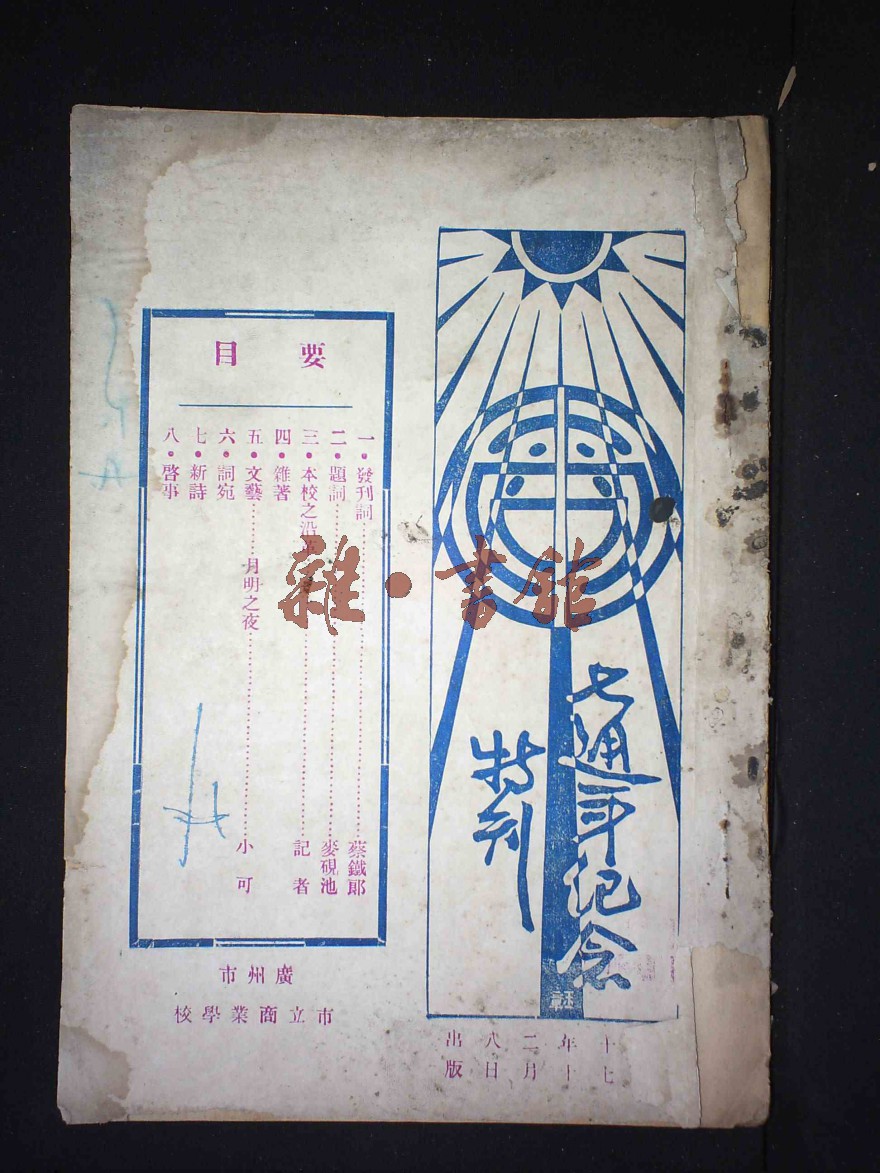 七週年紀念
特刊
十七年十二月八日出版
要目
一・發刊詞……蔡鐵郎
二・題詞……麥硯池
三・本校之沿革……記者
四・雜著
五・文藝……月明之夜……小可
六・詞宛
七・新詩
八・啓事
廣州市
市立商業學校
雜・書館